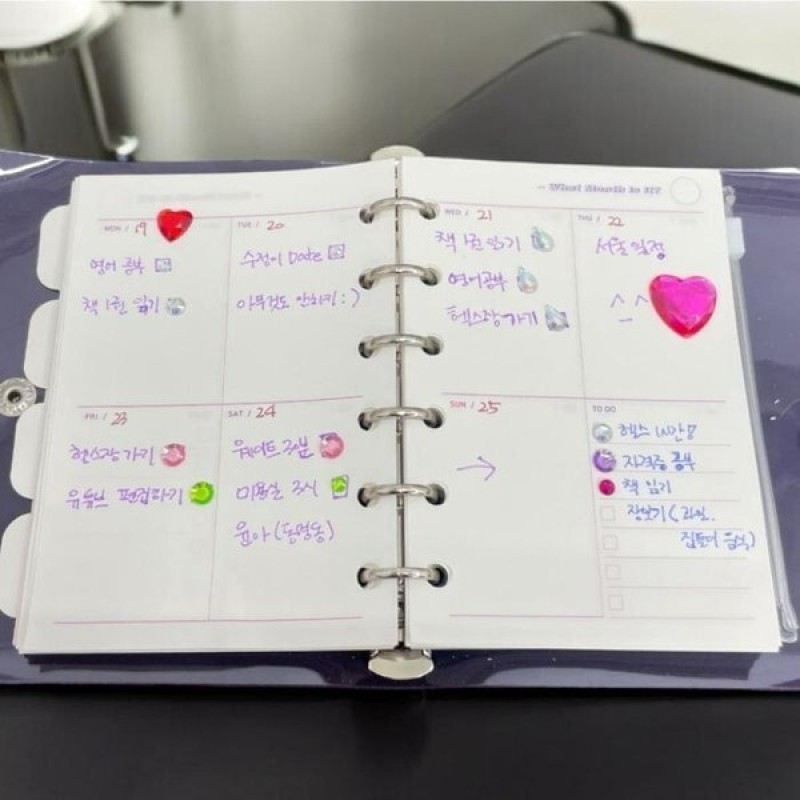 What Month is it?
MON / 19
영어 공부
책 1권 읽기
TUE / 20
수정이 Date
아무것도 안하기 :)
WED / 21
책 1권 읽기
영어공부
헬스장 가기
THU / 22
서울 일정
^_^
FRI / 23
헬스장 가기
유튜브 편집하기
SAT / 24
미용실 2시
윤아
SUN / 25
→
TO DO
헬스
자격증 공부
책 읽기
장보기 (과일,
집들이 음식)